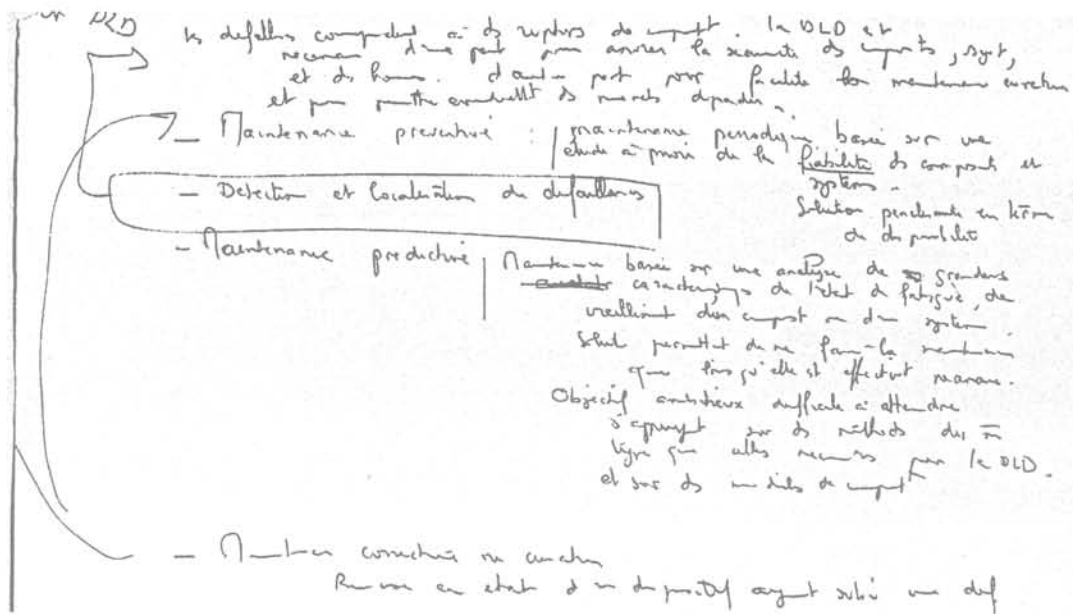 DLD
les défaillces correspondent à ds ruptures de compost la DLD est
nécessaire d'une part pour assurer la sécurité ds composts, syst,
et ds hommes. d'autre part pour faciliter maintenance curative
et pour permettre éventuellt ds
— Maintenance préventive : maintenance périodique basée sur une
étude a priori de la fiabilité ds composts et
systèmes
Solution en
— Détection et localisation de défaillances
— Maintenance prédictive Maintenance basée sur une analyse de grandeurs
caractéristiques de l'état de fatigue, de
vieillissmt d'un compost ou d'un système
Solut permettt de ne faire la maintenance
que lorsqu'elle est effectivt nécessaire.
Objectif ambitieux difficile à atteindre
s'appuyt sur ds méthods du m̄
type que celles nécessaires pour la DLD.
et sur ds modèles de compost
— Maintenance corrective ou curative
Remise en état d'un dispositif ayant subi une def